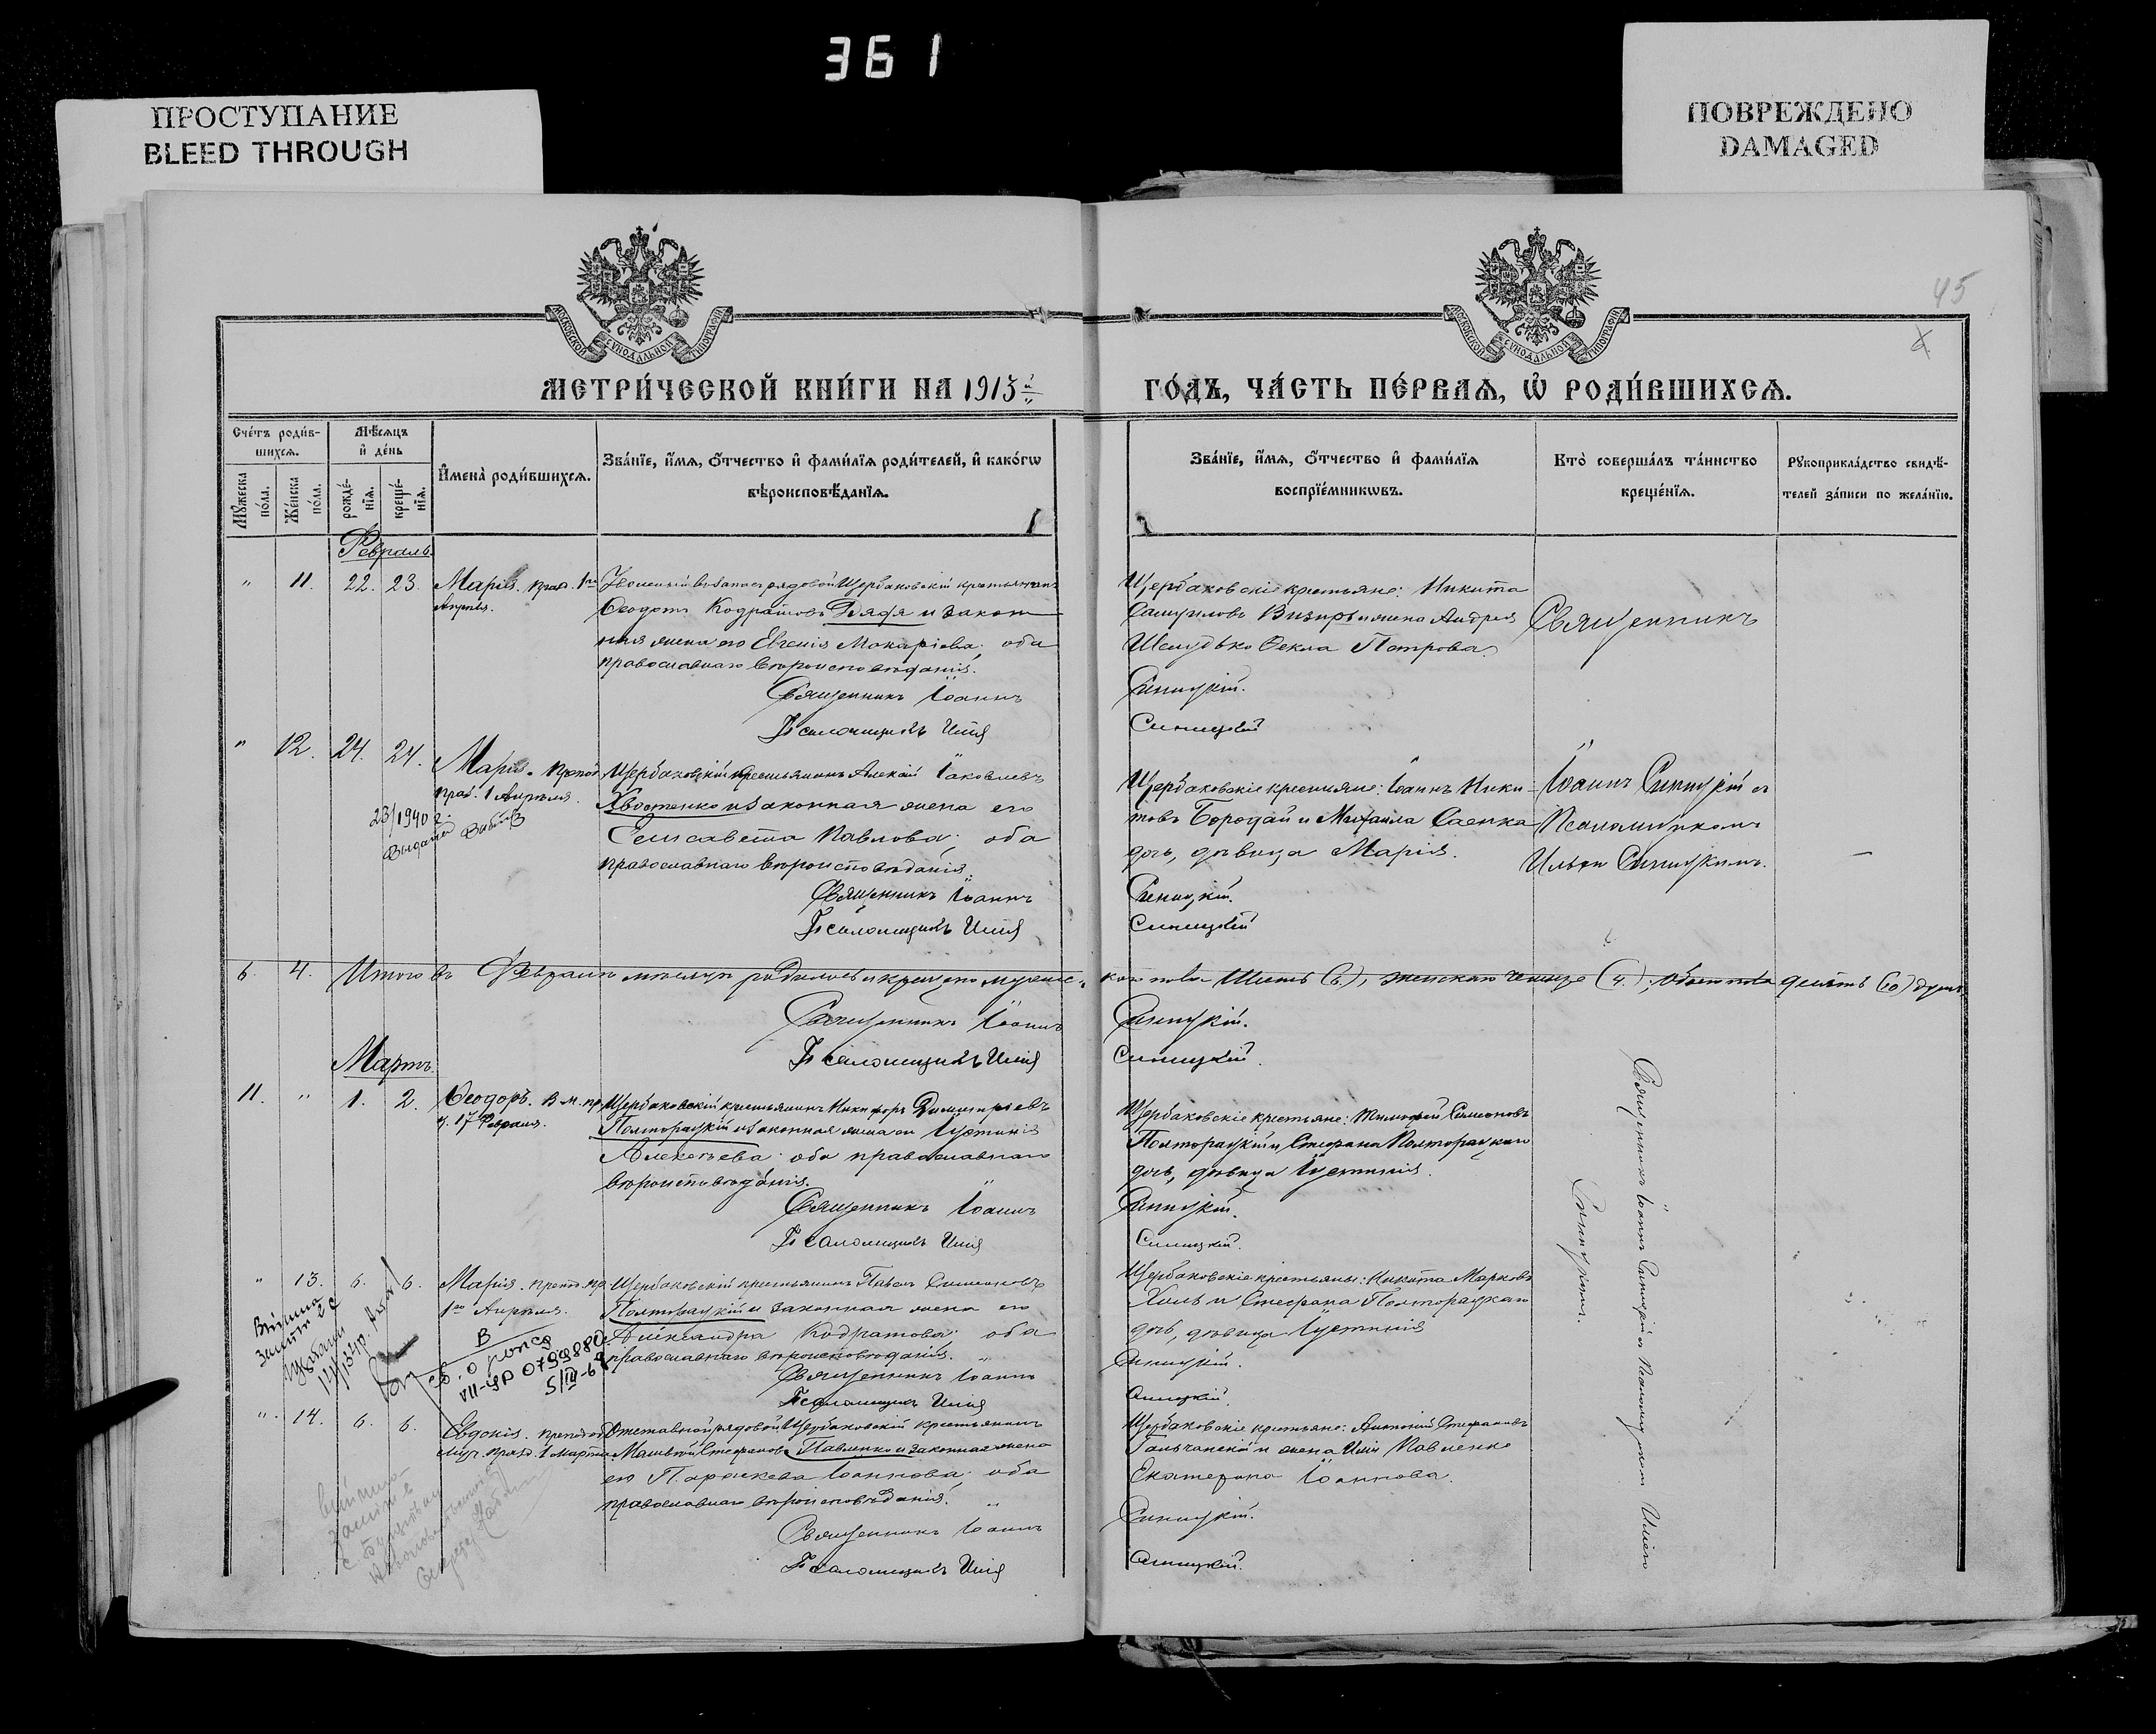 361
ПРОСТУПАНИЕ
BLEED THROUGH
ПОВРЕЖДЕНО
DAMAGED
МОСКОВСКОЙ СУНОДАЛЬНОЙ ТИПОГРАФІИ
МОСКОВСКОЙ СУНОДАЛЬНОЙ ТИПОГРАФІИ
45
МЕТРИ́ЧЕСКОЙ КНИ́ГИ НА 1913й
ГО́ДЪ, ЧА́СТЬ ПЕ́РВАЯ, Ѡ РОДИ́ВШИХСЯ.
Сче́тъ роди́в-
шихся.
Мѣсяцъ
и де́нь
Мꙋжеска
по́ла.
Же́нска
по́ла.
рожде́-
нїя.
креще́-
нїя.
Имена̀ роди́вшихся.
Зва́нїе, и́мя, о́тчество и фами́лїя роди́телей, и како́гѡ
вѣроисповѣ́данїя.
Зва́нїе, и́мя, о́тчество и фами́лїя
воспрїе́мникѡвъ.
Кто̀ соверша́лъ та́инство
креще́нїя.
Рꙋкоприкла́дство свидѣ́-
телей за́писи по жела́нїю.
Февраль.
" 11. 22. 23. Марія. праз. 1го
Апрѣля.
Уволенный въ запасъ рядовой Щербаковскій крестьянинъ
Ѳеодотъ Кодратовъ Дядя и закон
ная жена его Евгенія Макаріева; оба
православнаго вѣроисповѣданія.
Священникъ Іоаннъ
Псаломщикъ Илія
Щербаковскіе крестьяне: Никита
Самуиловъ Визирь и жена Андрея
Шелудько Ѳекла Петрова.
Синицкій.
Синицкій
Священникъ
" 12. 24. 24. Марія. Препод.
праз. 1 Апрѣля.
23/1940 г.
Выдана
Щербаковскій крестьянинъ Алексій Іаковлевъ
Хвостенко и законная жена его
Елисавета Павлова; оба
православнаго вѣроисповѣданія.
Священникъ Іоаннъ
Псаломщикъ Илія
Щербаковскіе крестьяне: Іоаннъ Ники-
товъ Бородай и Михаила Саенка
дочь, дѣвица Марія.
Синицкій.
Синицкій
Іоаннъ Синицкій съ
Псаломщикомъ
Ильею Синицкимъ.
6. 4. Итого въ Февралѣ мѣсяцѣ родилось и крещено мужес-
каго пола Шесть (6.), женскаго четыре (4.); обоего пола десять (10) душъ.
Священникъ Іоаннъ
Псаломщикъ Илія
Синицкій.
Синицкій.
Мартъ.
11. " 1. 2. Ѳеодоръ. В. м. пр.
17 Февраля.
Щербаковскій крестьянинъ Никифоръ Димитріевъ
Полторацкій и законная жена его Іустинія
Алексѣева; оба православнаго
вѣроисповѣданія.
Священникъ Іоаннъ
Псаломщикъ Илія
Щербаковскіе крестьяне: Тимоѳей Симеоновъ
Полторацкій и Стефана Полторацкаго
дочь, дѣвица Іустинія.
Синицкій.
Синицкій.
Священникъ Іоаннъ Синицкій съ Псаломщикомъ Иліею
Синицкимъ.
" 13. 6. 6. Марія. Препод. пр.
1го Апрѣля.
VII-ЯР 0799880
5/III-69
Щербаковскій крестьянинъ Павелъ Симеоновъ
Полторацкій и законная жена его
Александра Кодратова; оба
православнаго вѣроисповѣданія.
Священникъ Іоаннъ
Псаломщикъ Илія
Щербаковскіе крестьяне: Никита Марковъ
Хиль и Стефана Полторацкаго
дочь, дѣвица Іустинія
Синицкій.
Синицкій.
" 14. 6. 6. Евдокія. преподоб.
муч. празд. 1 марта
Отставной рядовой Щербаковскій крестьянинъ
Стефановъ Павленко и законная жена
его Параскева Іоаннова; оба
православнаго вѣроисповѣданія.
Священникъ Іоаннъ
Псаломщикъ Илія
Щербаковскіе крестьяне: Стефановъ
Гальчанскій и жена Иліи Павленко
Екатерина Іоаннова.
Синицкій.
Синицкій.